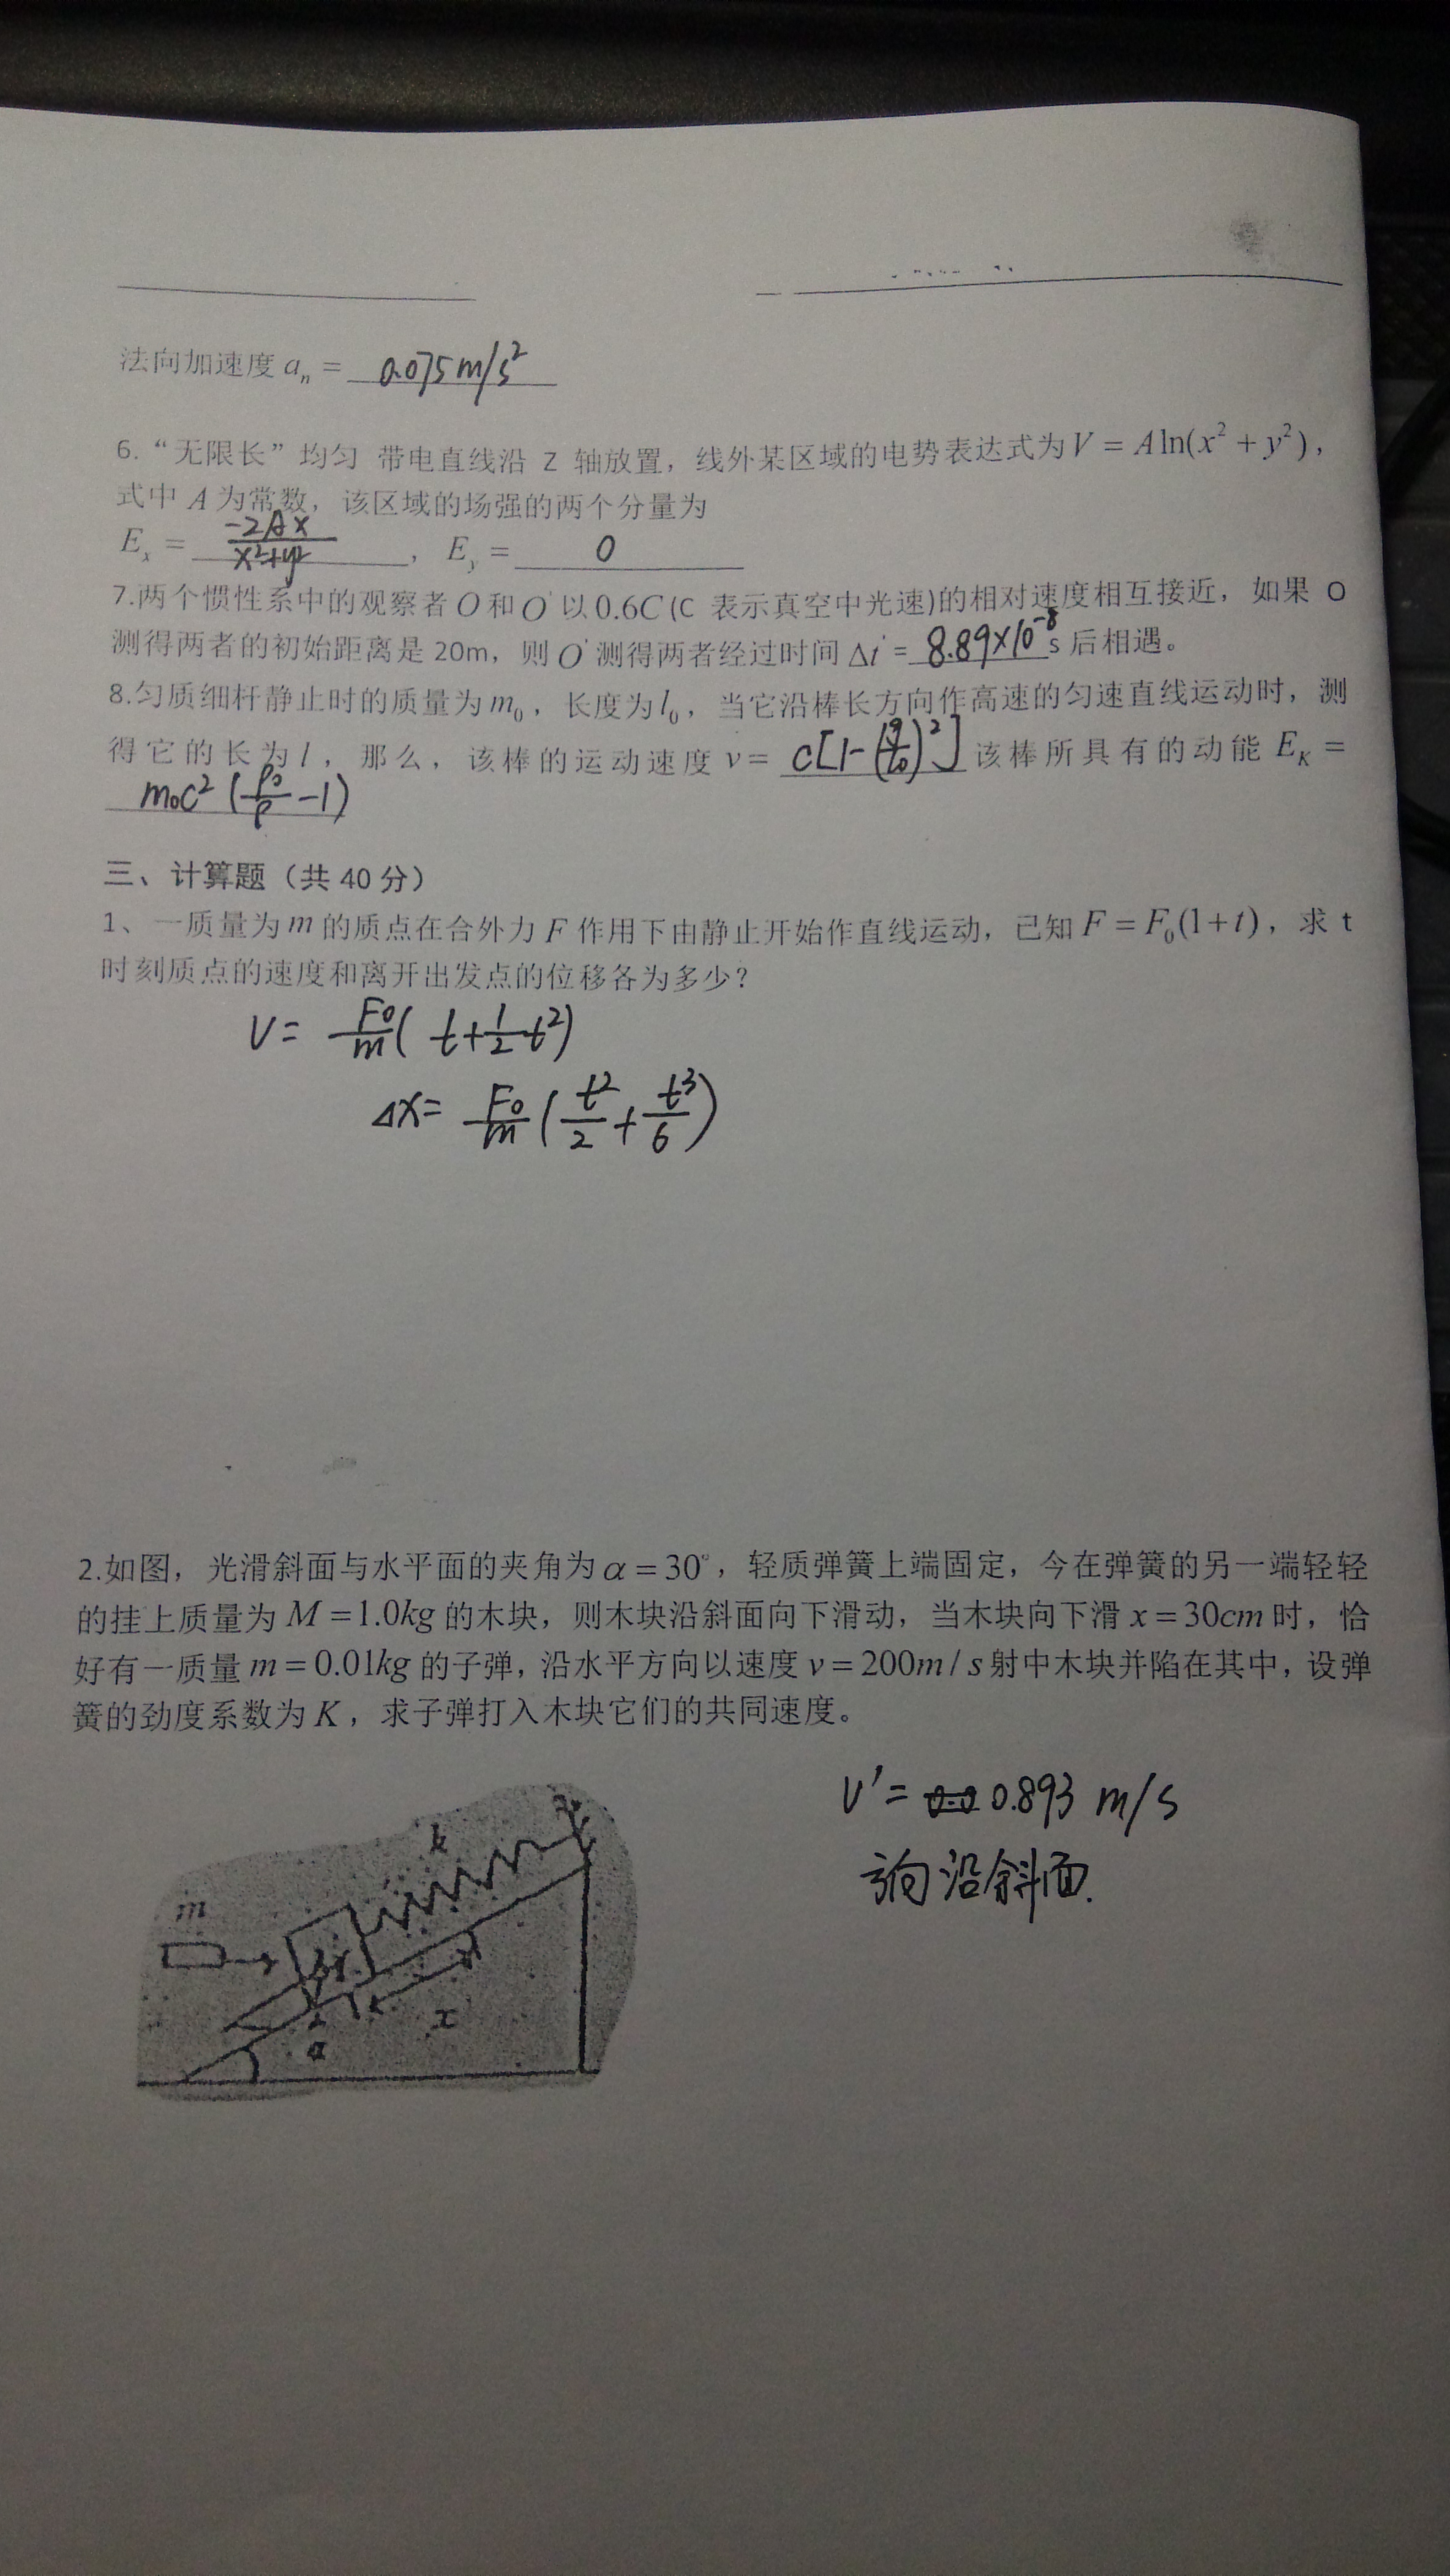 法向加速度 aₙ = 0.075m/s²
6. “无限长”均匀 带电直线沿 Z 轴放置，线外某区域的电势表达式为 V = A ln(x² + y²)，
式中 A 为常数，该区域的场强的两个分量为
Eₓ = -2Ax/(x²+y²)，Eᵧ = 0
7.两个惯性系中的观察者 O 和 O' 以 0.6C (C 表示真空中光速)的相对速度相互接近，如果 O
测得两者的初始距离是 20m，则 O' 测得两者经过时间 Δt' = 8.89×10⁻⁸ s 后相遇。
8.匀质细杆静止时的质量为 m₀，长度为 l₀，当它沿棒长方向作高速的匀速直线运动时，测
得它的长为 l，那么，该棒的运动速度 v = c[1-(l/l₀)²] 该棒所具有的动能 E_K =
m₀c²(l₀/l -1)
三、计算题（共 40 分）
1、一质量为 m 的质点在合外力 F 作用下由静止开始作直线运动，已知 F = F₀(1+t)，求 t
时刻质点的速度和离开出发点的位移各为多少？
V = F₀/m (t+½t²)
Δx = F₀/m (t²/2 + t³/6)
2.如图，光滑斜面与水平面的夹角为 α = 30°，轻质弹簧上端固定，今在弹簧的另一端轻轻
的挂上质量为 M = 1.0kg 的木块，则木块沿斜面向下滑动，当木块向下滑 x = 30cm 时，恰
好有一质量 m = 0.01kg 的子弹，沿水平方向以速度 v = 200m / s 射中木块并陷在其中，设弹
簧的劲度系数为 K，求子弹打入木块它们的共同速度。
V' = 0.893 m/s
方向沿斜面.
k
m
M
x
α